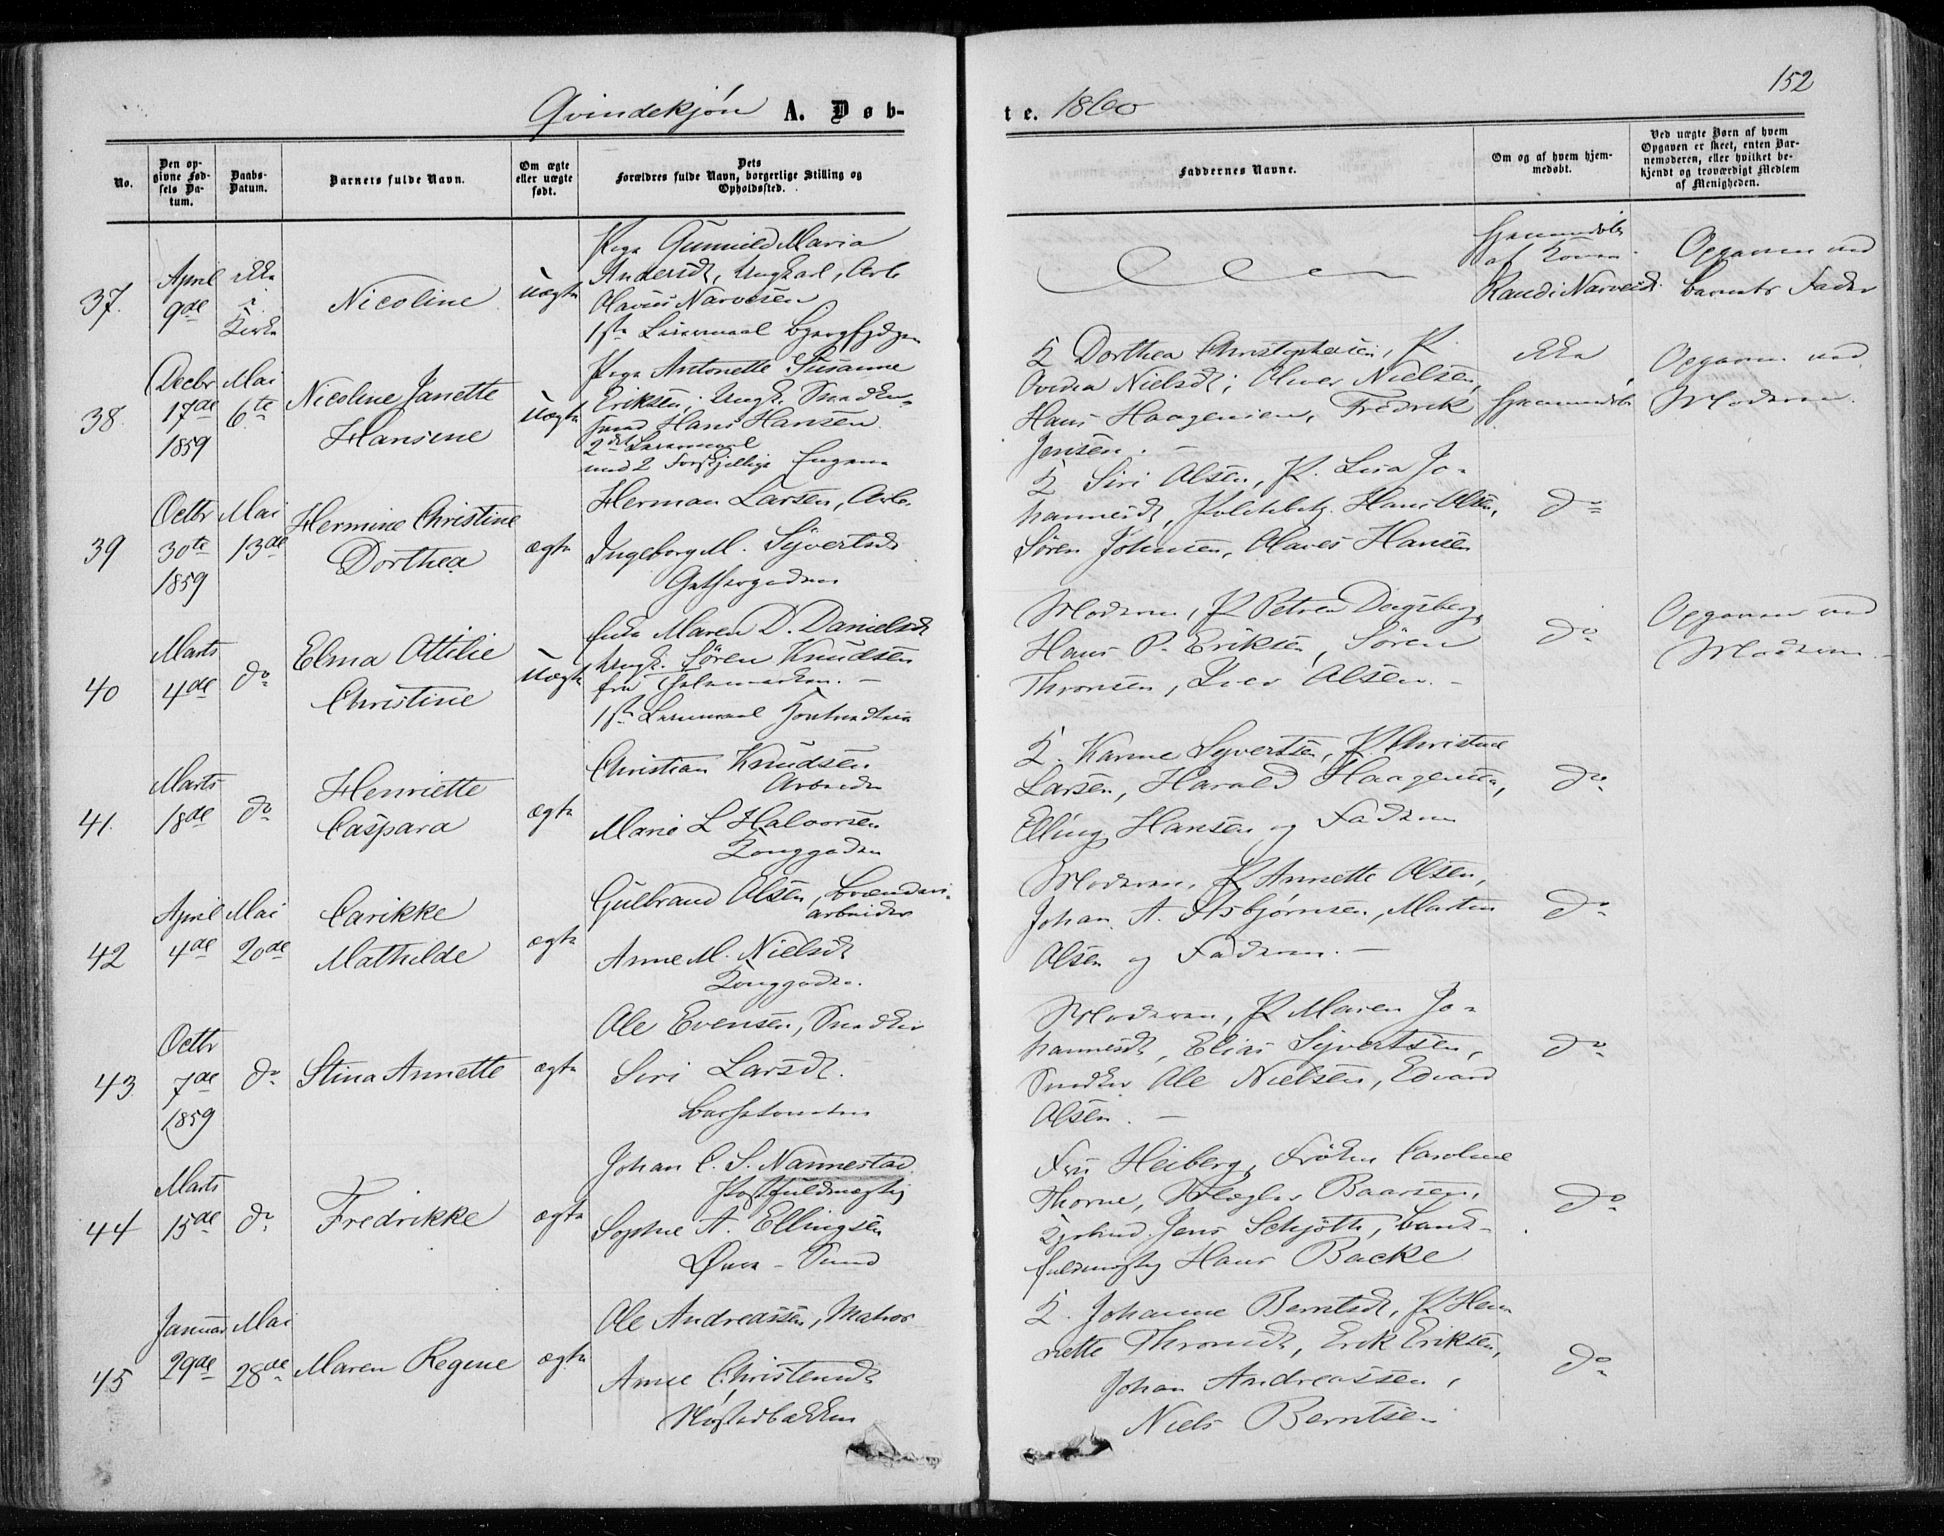 152
Qvindekjøn A. Døb-
te. 1860
No.
Den op-
givne Fød-
sels Da-
tum.
Daabs-
Datum.
Barnets fulde Navn.
Om ægte
eller uægte
født.
Dets
Forældres fulde Navn, borgerlige Stilling og
Opholdssted.
Faddernes Navne.
Om og af hvem hjem-
medøbt.
Ved uægte Børn af hvem
Opgaven er skeet, enten Bar-
nemoderen, eller hvilket be-
kjendt og troværdigt Medlem
af Menigheden.
37.
April
9de
ikke
i
Kirke
Nicoline
uægte
Pige Gunnild Maria
Andersdt, Ungkarl, Arb.
Olavus Narvesen
1ste Leiermaal
Hjemmedøbt
af Konen
Randi Narvesdt.
Opgaven ved
barnets Fader
38.
Decbr
17de
1859
Mai
6te
Nicoline Janette
Hansine
uægte
Pige Antonette Susanne
Eriksen. Ungk. Snedker-
svend Hans Hansen
2det Leiermaal
med 2 Forskjellige Engene
K Dorthea Christophersen, P.
Ovedia Nielsdt; Oluer Nielsen,
Hans Haagensen, Fredrik
Jensen. -
ikke
Hjemmedøbt
Opgaven ved
Moderen.
39
Octbr
30te
1859
Mai
13de
Hermine Christine
Dorthea
ægte
Herman Larsen, Arb.
Ingeborg M. Syvertsdt
K Siri Olsen, P. Lisa Jo-
hannesdt, Politibetj. Hans Olsen,
Søren Johnsen, Olaves Hansen
do
40
Marts
4de
do
Elma Ottilie
Christine
uægte
Enke Maren D. Danielsdt
Ungk. Søren Knudsen
fra
1ste Leiermaal
Moderen, P Petrea Dengsberg,
Hans P. Eriksen, Søren
Thronsen, Iver Olsen. -
do
Opgaven ved
Moderen. -
41.
Marts
18de
do
Henriette
Caspara
ægte
Christian Knudsen
Arbeider
Marie L Halvorsen
Konggaden
K. Karine Syvertsen, P Christine
Larsen, Harald Haagensen,
Elling Hansen og Faderen
do
42
April
4de
Mai
20de
Carikke
Mathilde
ægte
Gulbrand Olsen, Brænderi-
arbeider
Anne M. Nielsdt
Konggaden.
Moderen, P Annette Olsen,
Johan A. Asbjørnsen, Martin
Olsen og Faderen. -
do
43
Octbr
7de
1859
do
Stina Annette
ægte
Ole Evensen, Snedker
Siri Larsdt.
Moderen, P Maren Jo-
hannesdt, Elias Syvertsen,
Snedker Ole Nielsen, Edvard
Olsen. -
do
44
Marts
15de
do
Fredrikke
ægte
Johan C. S. Nannestad
Postfuldmægtig
Sophie A. Ellingsen
Øvre-Sund
Fru Heiberg, Frøken Caroline
Thorne, Baarsen,
Kjøbmd. Jens Schjøtt, Bank-
fuldmægtig Hans Backe
do
45
Januar
29de
Mai
28de
Maren Regine
ægte
Ole Andreassen, Matros
Anne Christensdt
Møstadbakken
K. Johanne Berntsdt, P Hen-
riette Thronsdt, Erik Eriksen,
Johan Andreassen,
Niels Berntsen
do